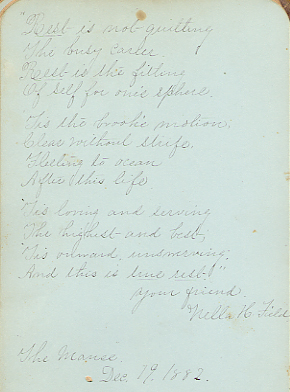 "Rest is not quitting
The busy career.
Rest is the fitting
Of self for one's sphere.
'Tis the brook's motion.
Clear without strife.
Fleeting to ocean
After this life
'Tis loving and serving
The highest and best,
'Tis onward, unswerving.
And this is true rest!"
Your friend.
Nella H. Field
The Manse.
Dec. 1882.